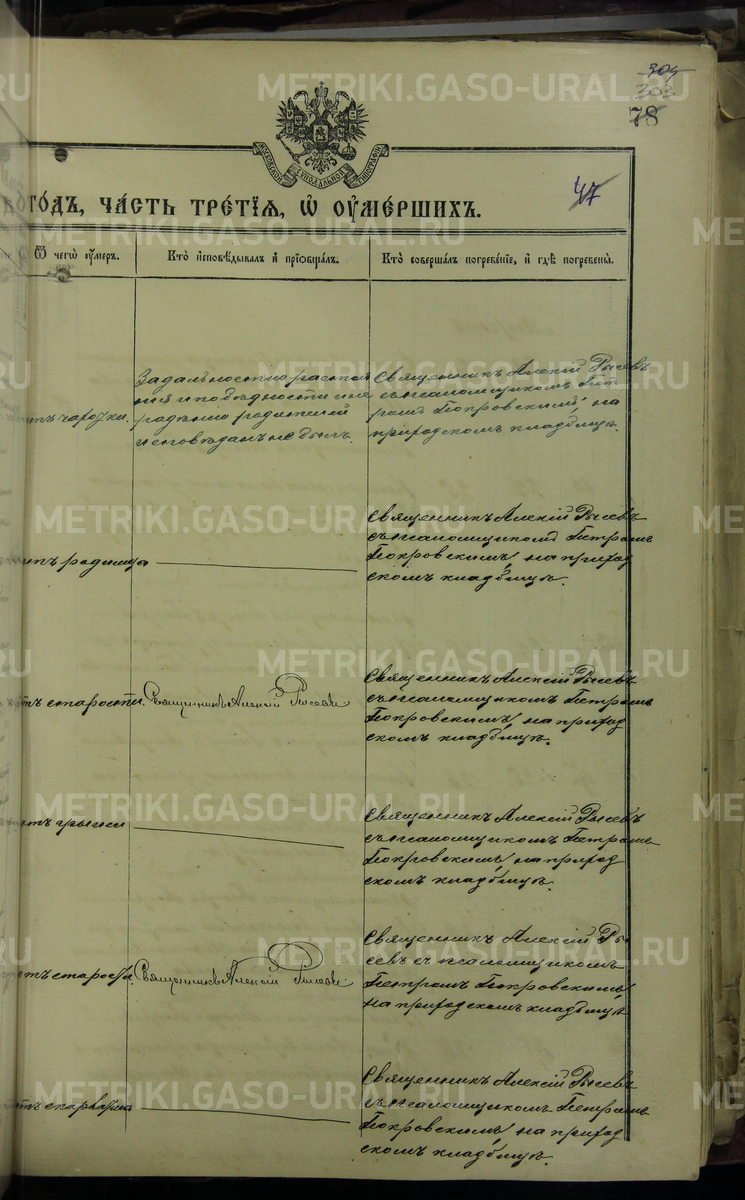 304
303
78
47
МОСКОВСКОЙ СѴНОДАЛЬНОЙ ТИПОГРАФІИ
ГО́ДЪ, ЧА́СТЬ ТРЕ́ТЇѦ, Ѡ҆ ОУ҆МЕ́РШИХЪ.
Ѿ чегѡ̀ оу҆́меръ.
Кто̀ и҆сповѣ́дывалъ и҆ прїѡбща́лъ.
Кто̀ соверша́лъ погребе́нїе, и҆ гдѣ̀ погребены̀.
отъ чахотки.
За дальностію разстоя
нія и по бѣдности и не
радѣнію родителей
исповѣданъ не былъ.
Священникъ Алексій Рысевъ
съ псаломщикомъ Пет
ромъ Покровскимъ, на
приходскомъ кладбищѣ.
отъ родимца
Священникъ Алексій Рысевъ
съ псаломщикомъ Петромъ
Покровскимъ, на приход
скомъ кладбищѣ.
отъ старости.
Священникъ Алексій Рысевъ
Священникъ Алексій Рысевъ
съ псаломщикомъ Петромъ
Покровскимъ, на приход
скомъ кладбищѣ.
отъ грыжи
Священникъ Алексій Рысевъ
съ псаломщикомъ Петромъ
Покровскимъ, на приход
скомъ кладбищѣ.
отъ старости.
Священникъ Алексій Рысевъ.
Священникъ Алексій Ры
севъ съ псаломщикомъ
Петромъ Покровскимъ,
на приходскомъ кладбищѣ
Священникъ Алексій Рысевъ
съ псаломщикомъ Петромъ
Покровскимъ, на приход
скомъ кладбищѣ.
METRIKI.GASO-URAL.RU